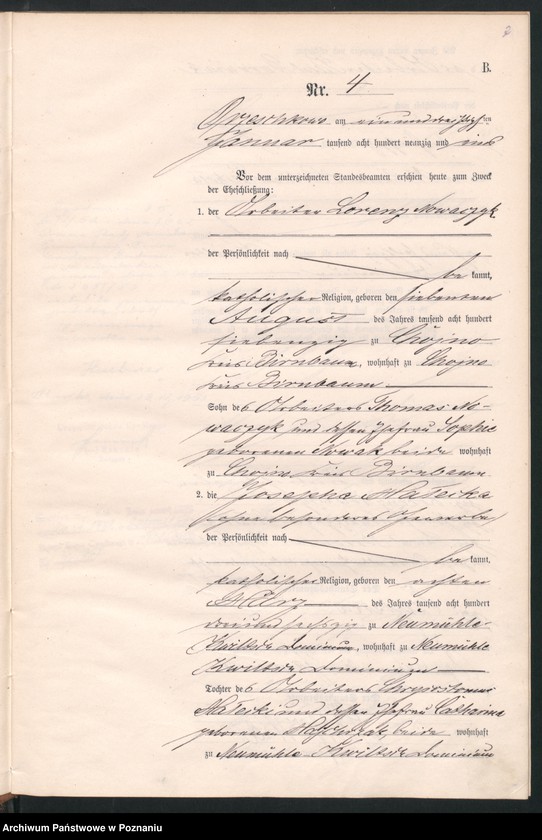 B.
Nr. 4
Orzeschkowo am einunddreißigsten
Januar tausend acht hundert neunzig und eins
Vor dem unterzeichneten Standesbeamten erschien heute zum Zweck
der Eheschließung:
1. der Arbeiter Lorenz Nowaczyk
der Persönlichkeit nach
be kannt,
katholischer Religion, geboren den siebenten
August des Jahres tausend acht hundert
siebenzig zu Chojno
Kreis Birnbaum, wohnhaft zu Chojno
Kreis Birnbaum
Sohn des Arbeiters Thomas No-
waczyk und dessen Ehefrau Sophie
geborenen Nowak beide wohnhaft
zu Chojno Kreis Birnbaum
2. die Josepha Małecka
ohne besonderes Gewerbe
der Persönlichkeit nach
be kannt,
katholischer Religion, geboren den achten
März des Jahres tausend acht hundert
dreiundsechszig zu Neumühle
Kwiltsch Dominium, wohnhaft zu Neumühle
Kwiltsch Dominium
Tochter des Arbeiters
Małecki und dessen Ehefrau Catharina
geborenen beide wohnhaft
zu Neumühle Kwiltsch Dominium
Archiwum Państwowe w Poznaniu